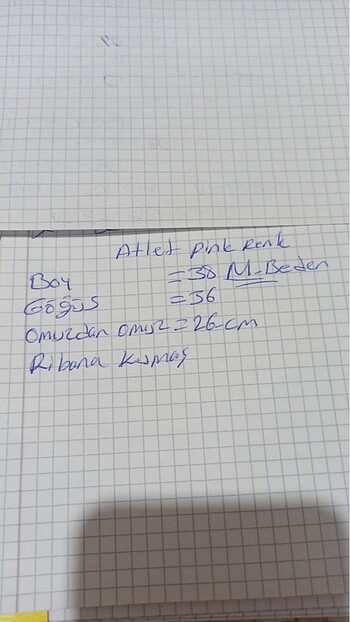 Atlet pink Renk
Boy = 38 M-Beden
Göğüs = 36
Omuzdan omuz = 26 cm
Ribana Kumaş